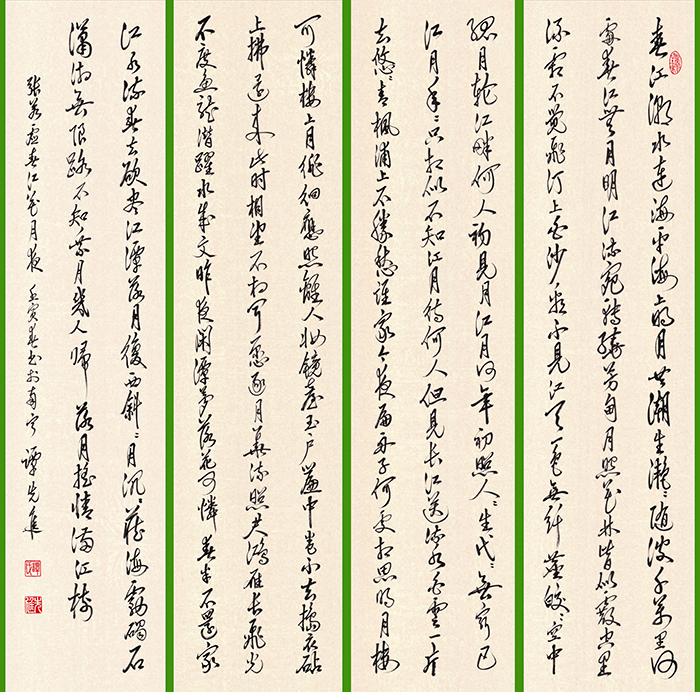 春江潮水連海平海上明月共潮生灩〻随波千萬里何
處春江無月明江流宛轉繞芳甸月照花林皆似霰空里
流霜不觉飛汀上白沙看不見江天一色無纤塵皎〻空中
孤月轮江畔何人初見月江月何年初照人〻生代〻無窮已
江月年〻只相似不知江月待何人但見長江送流水白雲一片
去悠〻青楓浦上不勝愁誰家今夜扁舟子何處相思明月樓
可憐樓上月徘徊應照離人妝鏡臺玉戶簾中卷不去擣衣砧
上拂還来此时相望不相聞願逐月華流照君鴻雁長飛光
不度魚龍潛躍水成文昨夜閑潭夢落花可憐春半不還家
江水流春去欲盡江潭落月復西斜〻月沉〻藏海霧碣石
瀟湘無限路不知乘月幾人歸 落月搖情滿江樹
張若虛春江花月夜 壬寅春书於南宁 譚先進